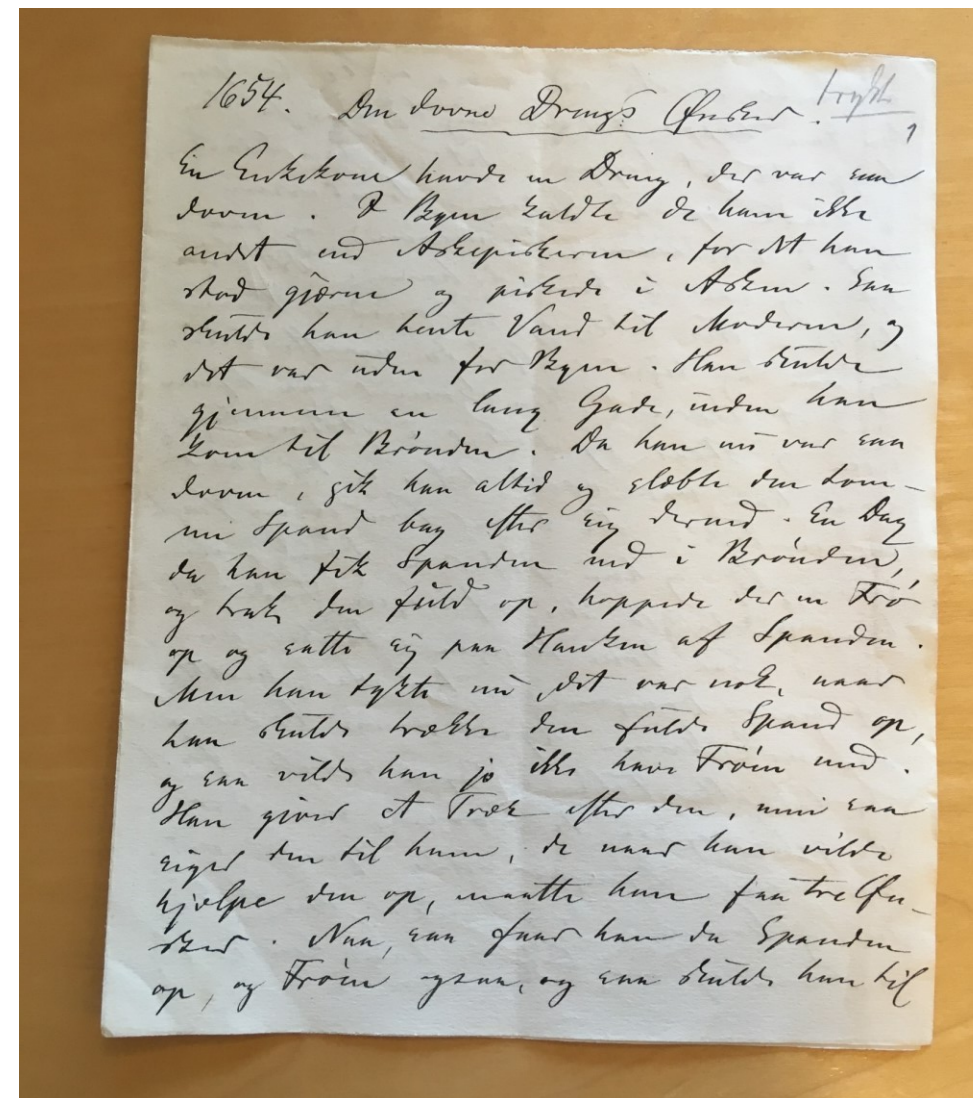 1654. Den dovne Drengs Ønsker. trykt
1
En Enkekone havde en Dreng, der var saa
doven. I Byen kaldte de ham ikke
andet end Askepiskeren, for det han
stod gjærne og piskede i Asken. Saa
skulde han hente Vand til Moderen, og
det var uden for Byen. Han skulde
gjennem en lang Gade, inden han
kom til Brønden. Da han nu var saa
doven, gik han altid og slæbte den tom-
me Spand bag efter sig derud. En Dag
da han fik Spanden ned i Brønden,
og trak den fuld op, hoppede der en Frø
op og satte sig paa Hanken af Spanden.
Men han tykte nu det var nok, naar
han skulde trække den fulde Spand op,
og saa vilde han jo ikke have Frøen med.
Han giver et Træk efter den, men saa
siger den til ham, de naar han vilde
hjælpe den op, maatte han faa tre Øn-
sker. Naa, saa faar han da Spanden
op, og Frøen ogsaa, og saa skulde han til